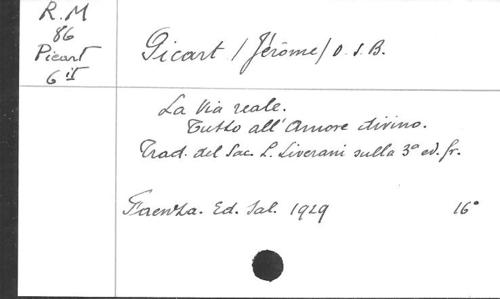 R. M
86
Picart
6 II
Picart / Jérôme / O. S. B.
La Via reale.
Tutto all'Amore divino.
Trad. del Sac. L. Liverani sulla 3° ed. fr.
Faenza. Ed. Sal. 1929 16°